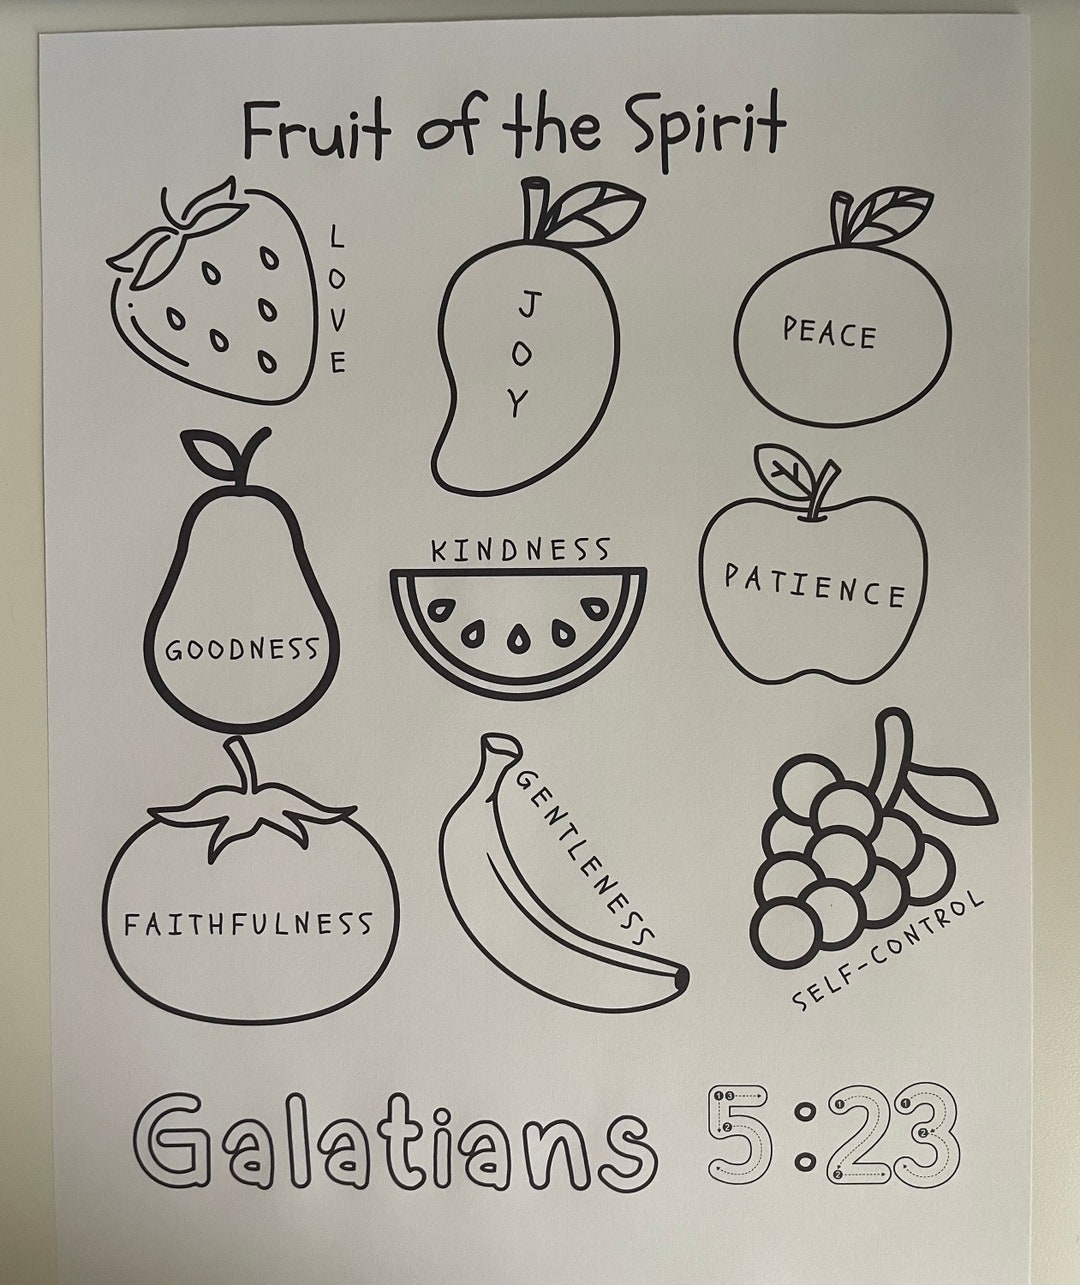 Fruit of the Spirit
LOVE
JOY
PEACE
GOODNESS
KINDNESS
PATIENCE
FAITHFULNESS
GENTLENESS
SELF-CONTROL
Galatians 5:23